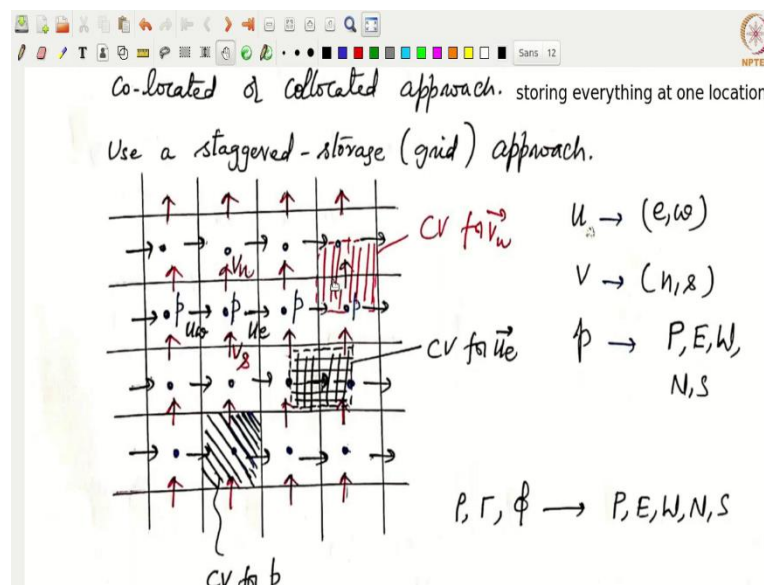 Sans 12
NPTE
Co-located or collocated approach. storing everything at one location
Use a staggered-storage (grid) approach.
CV for v⃗n
u → (e,w)
vn
v → (n,s)
p p p p
uw ue
vs
CV for u⃗e
p → P, E, W,
N, S
ρ, Γ, ϕ → P, E, W, N, S
CV for p